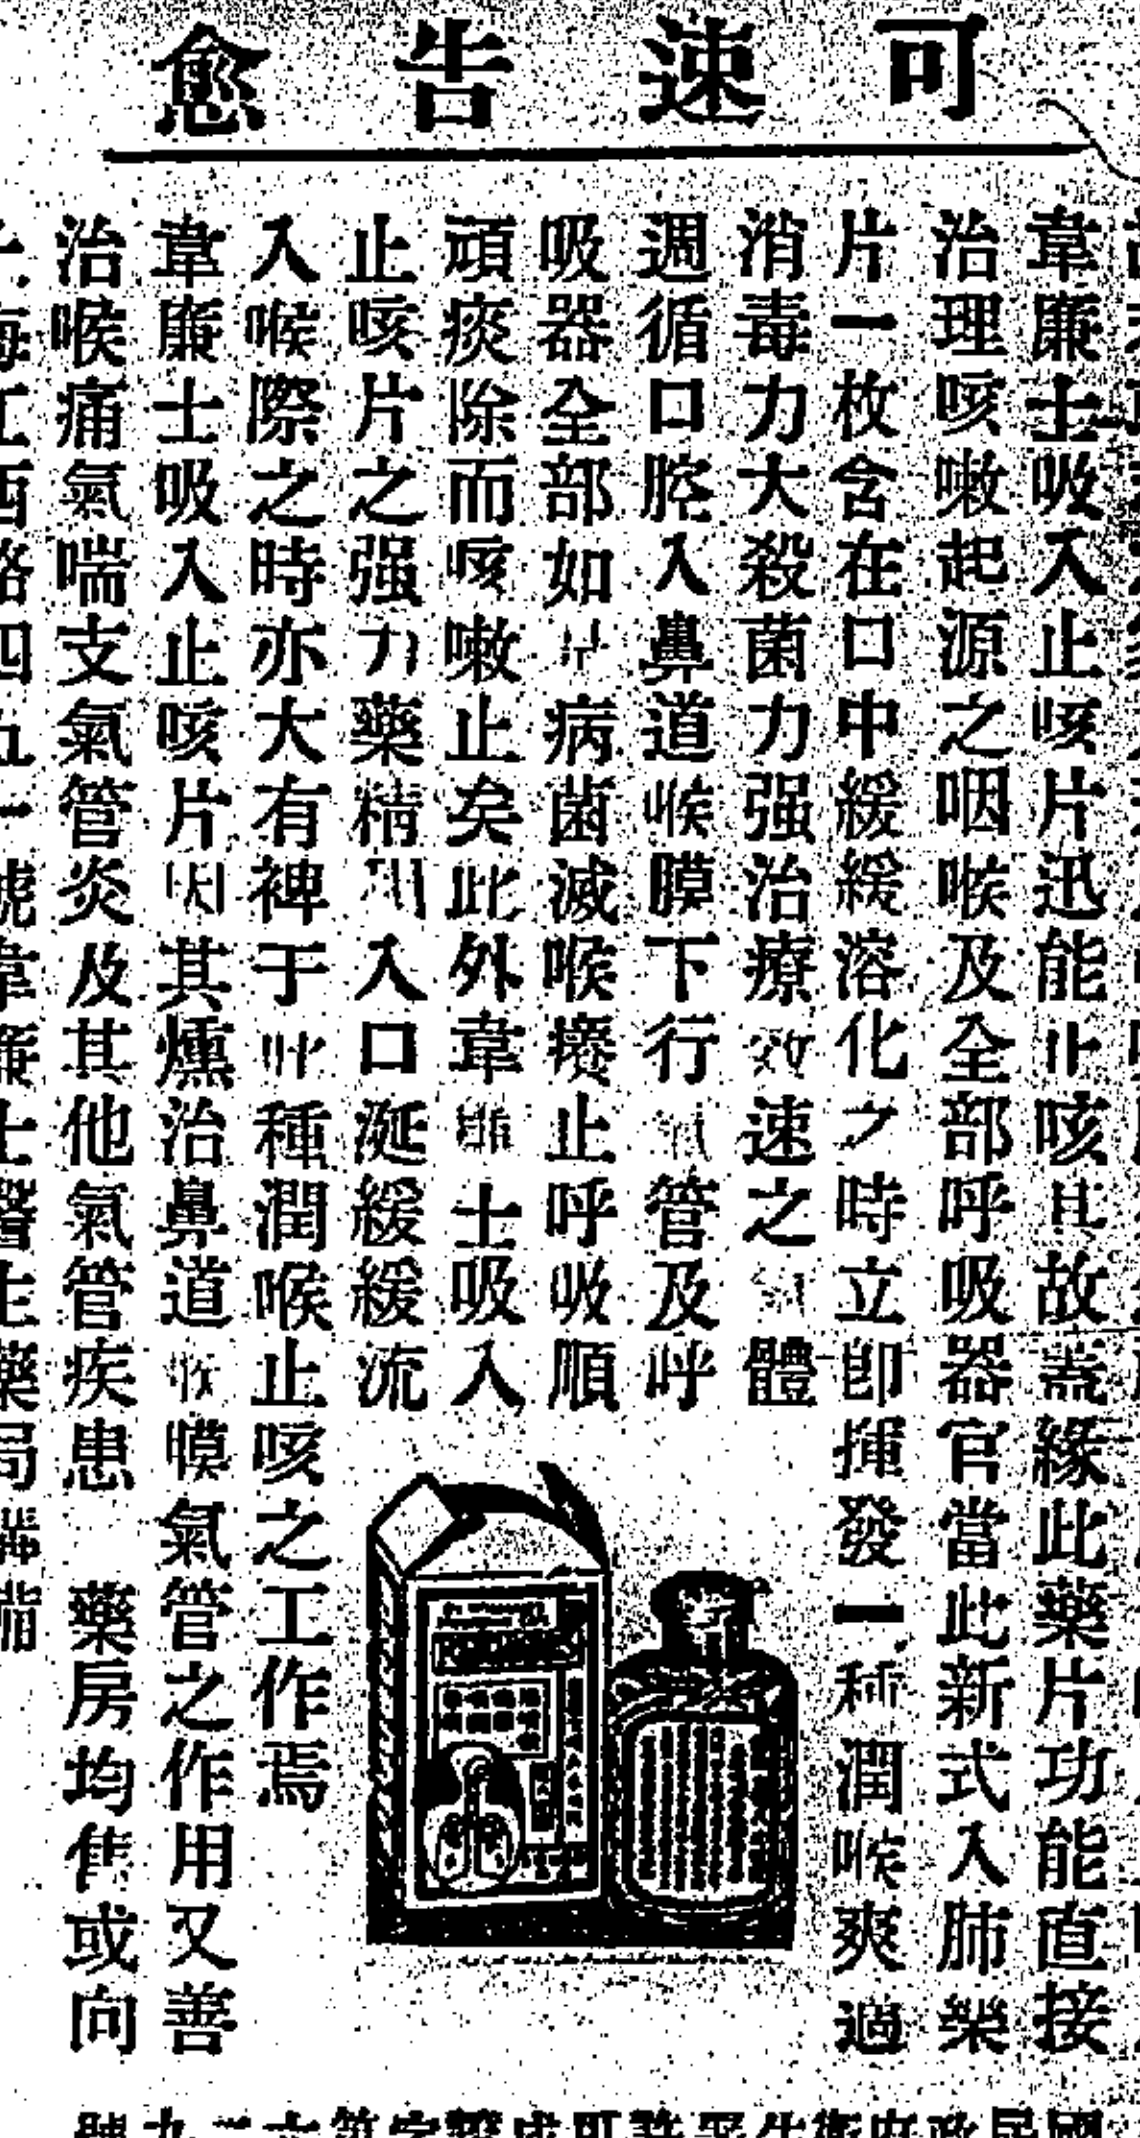 可速告愈
韋廉士吸入止咳片迅能止咳其故蓋緣此藥片功能直接
治理咳嗽起源之咽喉及全部呼吸器官當此新式入肺藥
片一枚含在口中緩緩溶化之時立卽揮發一種潤喉爽適
消毒力大殺菌力强治療效速之氣體
週循口腔入鼻道喉膜下行氣管及呼
吸器全部如是病菌滅喉癢止呼吸順
頑痰除而咳嗽止矣此外韋廉士吸入
止咳片之强力藥精入口涎緩緩流
入喉際之時亦大有裨于此種潤喉止咳之工作焉
韋廉士吸入止咳片因其燻治鼻道喉膜氣管之作用又善
治喉痛氣喘支氣管炎及其他氣管疾患 藥房均售或向
海江西路四五一號韋廉士醫生藥局購